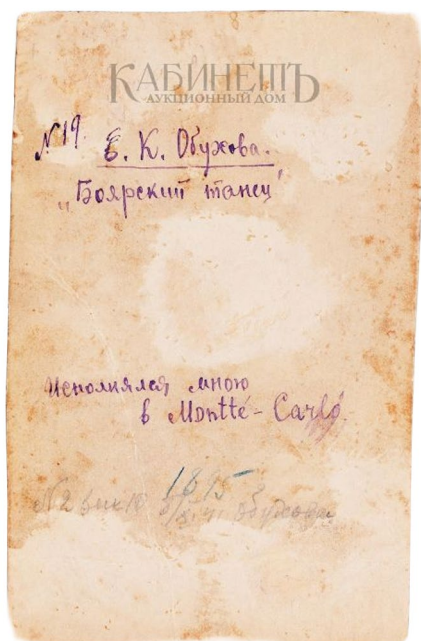 КАБИНЕТЪ
АУКЦИОННЫЙ ДОМ
N19.
Е. К. Обухова.
„Боярский танец"
Исполнялся мною
в Montté-Carló
1895
N2 Обухова